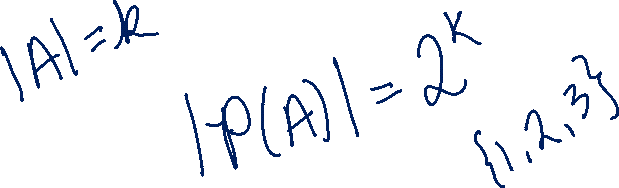 |A|=k
|P(A)|=2^k
{1,2,3}